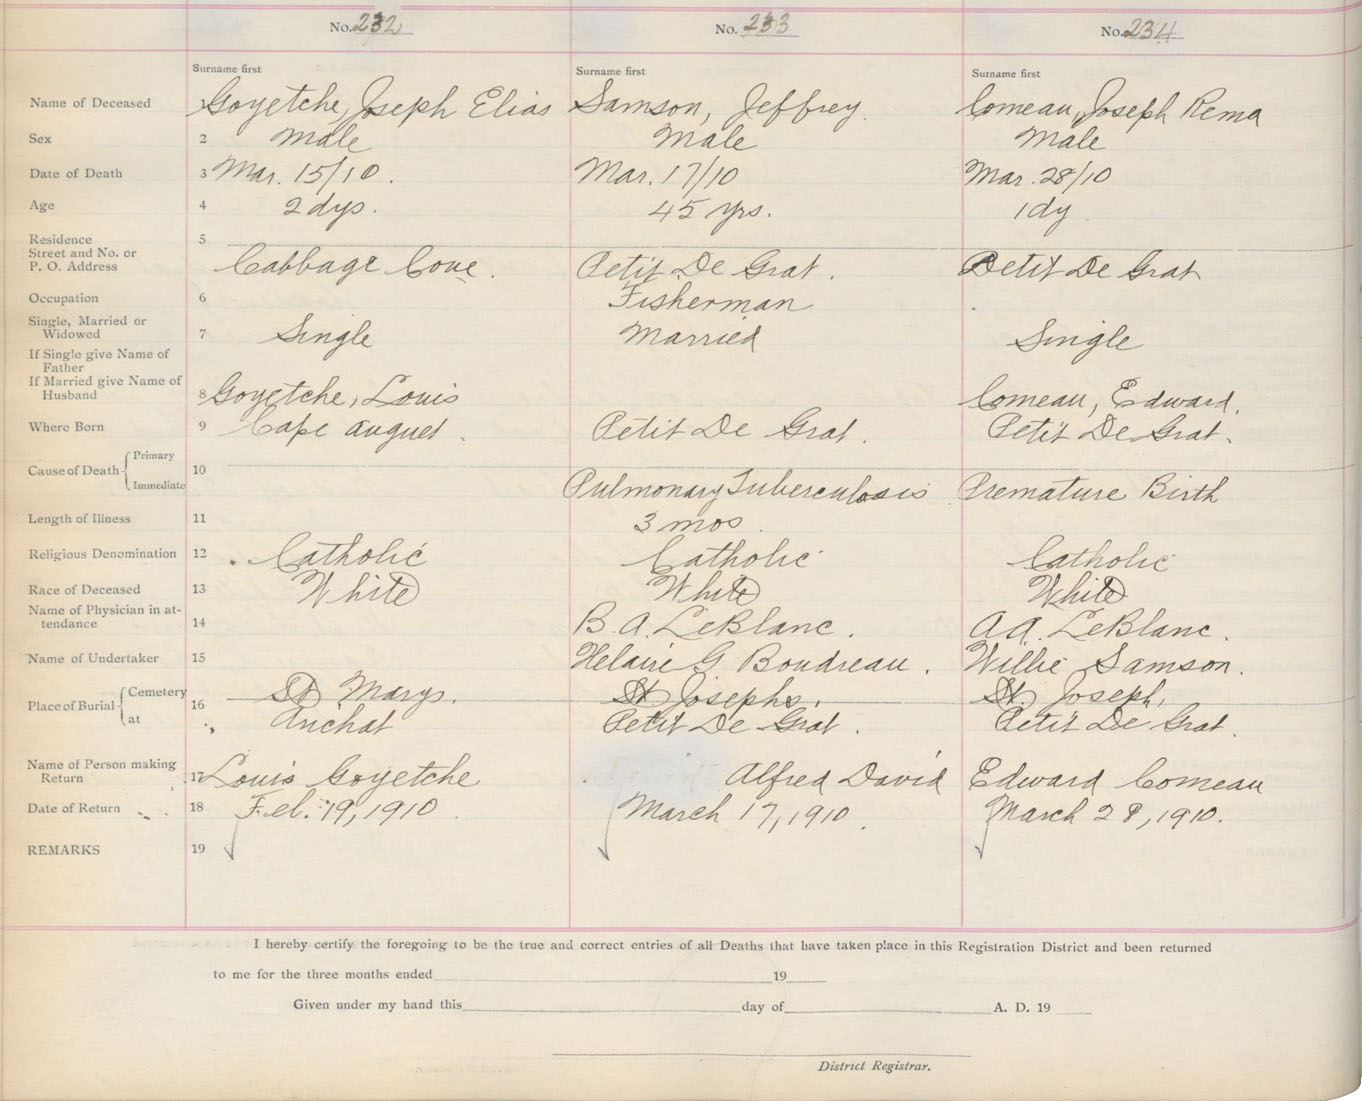 No. 232 No. 233 No. 234
Surname first Surname first Surname first
Name of Deceased 1 Goyetche, Joseph Elias Samson, Jeffrey. Comeau, Joseph Rema
Sex 2 Male Male Male
Date of Death 3 Mar. 15/10. Mar. 17/10 Mar. 28/10
Age 4 2 dys. 45 yrs. 1 dy
Residence 5
Street and No. or
P. O. Address Cabbage Cove. Petit De Grat. Petit De Grat
Occupation 6 Fisherman
Single, Married or
Widowed 7 Single Married Single
If Single give Name of
Father
If Married give Name of
Husband 8 Goyetche, Louis Comeau, Edward.
Where Born 9 Cape auguet. Petit De Grat. Petit De Grat.
Cause of Death Primary 10
Immediate Pulmonary Tuberculosis Premature Birth
Length of Illness 11 3 mos.
Religious Denomination 12 Catholic Catholic Catholic
Race of Deceased 13 White White White
Name of Physician in at-
tendance 14 B. A. LeBlanc. A A. LeBlanc.
Name of Undertaker 15 Helaire G Boudreau. Willie Samson.
Place of Burial Cemetery 16 St Marys. St Josephs. St. Joseph,
at Anchat Petit De Grat. Petit De Grat.
Name of Person making
Return 17 Louis Goyetche Alfred David Edward Comeau
Date of Return 18 Feb. 19, 1910 March 17, 1910. March 28, 1910.
REMARKS 19
I hereby certify the foregoing to be the true and correct entries of all Deaths that have taken place in this Registration District and been returned
to me for the three months ended 19
Given under my hand this day of A. D. 19
District Registrar.